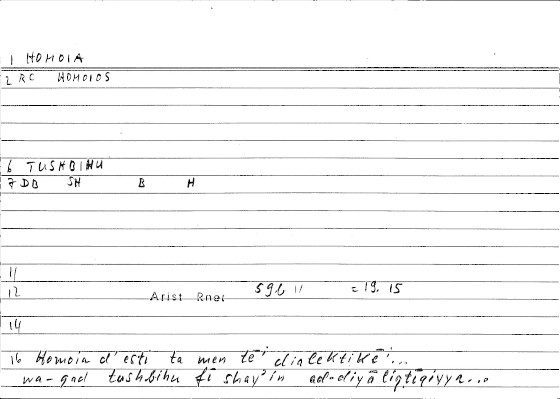 1 HOMOIA
2 RC HOMOIOS
6 TUSHBIHU
7 DB SH B H
11
12 Arist Rhet 59b 11 = 19. 15
14
16 Homoia d'esti ta men tē̂i dialektikē̂i...
wa-qad tushbihu fī shay'in ad-diyāliqtīqiyya...